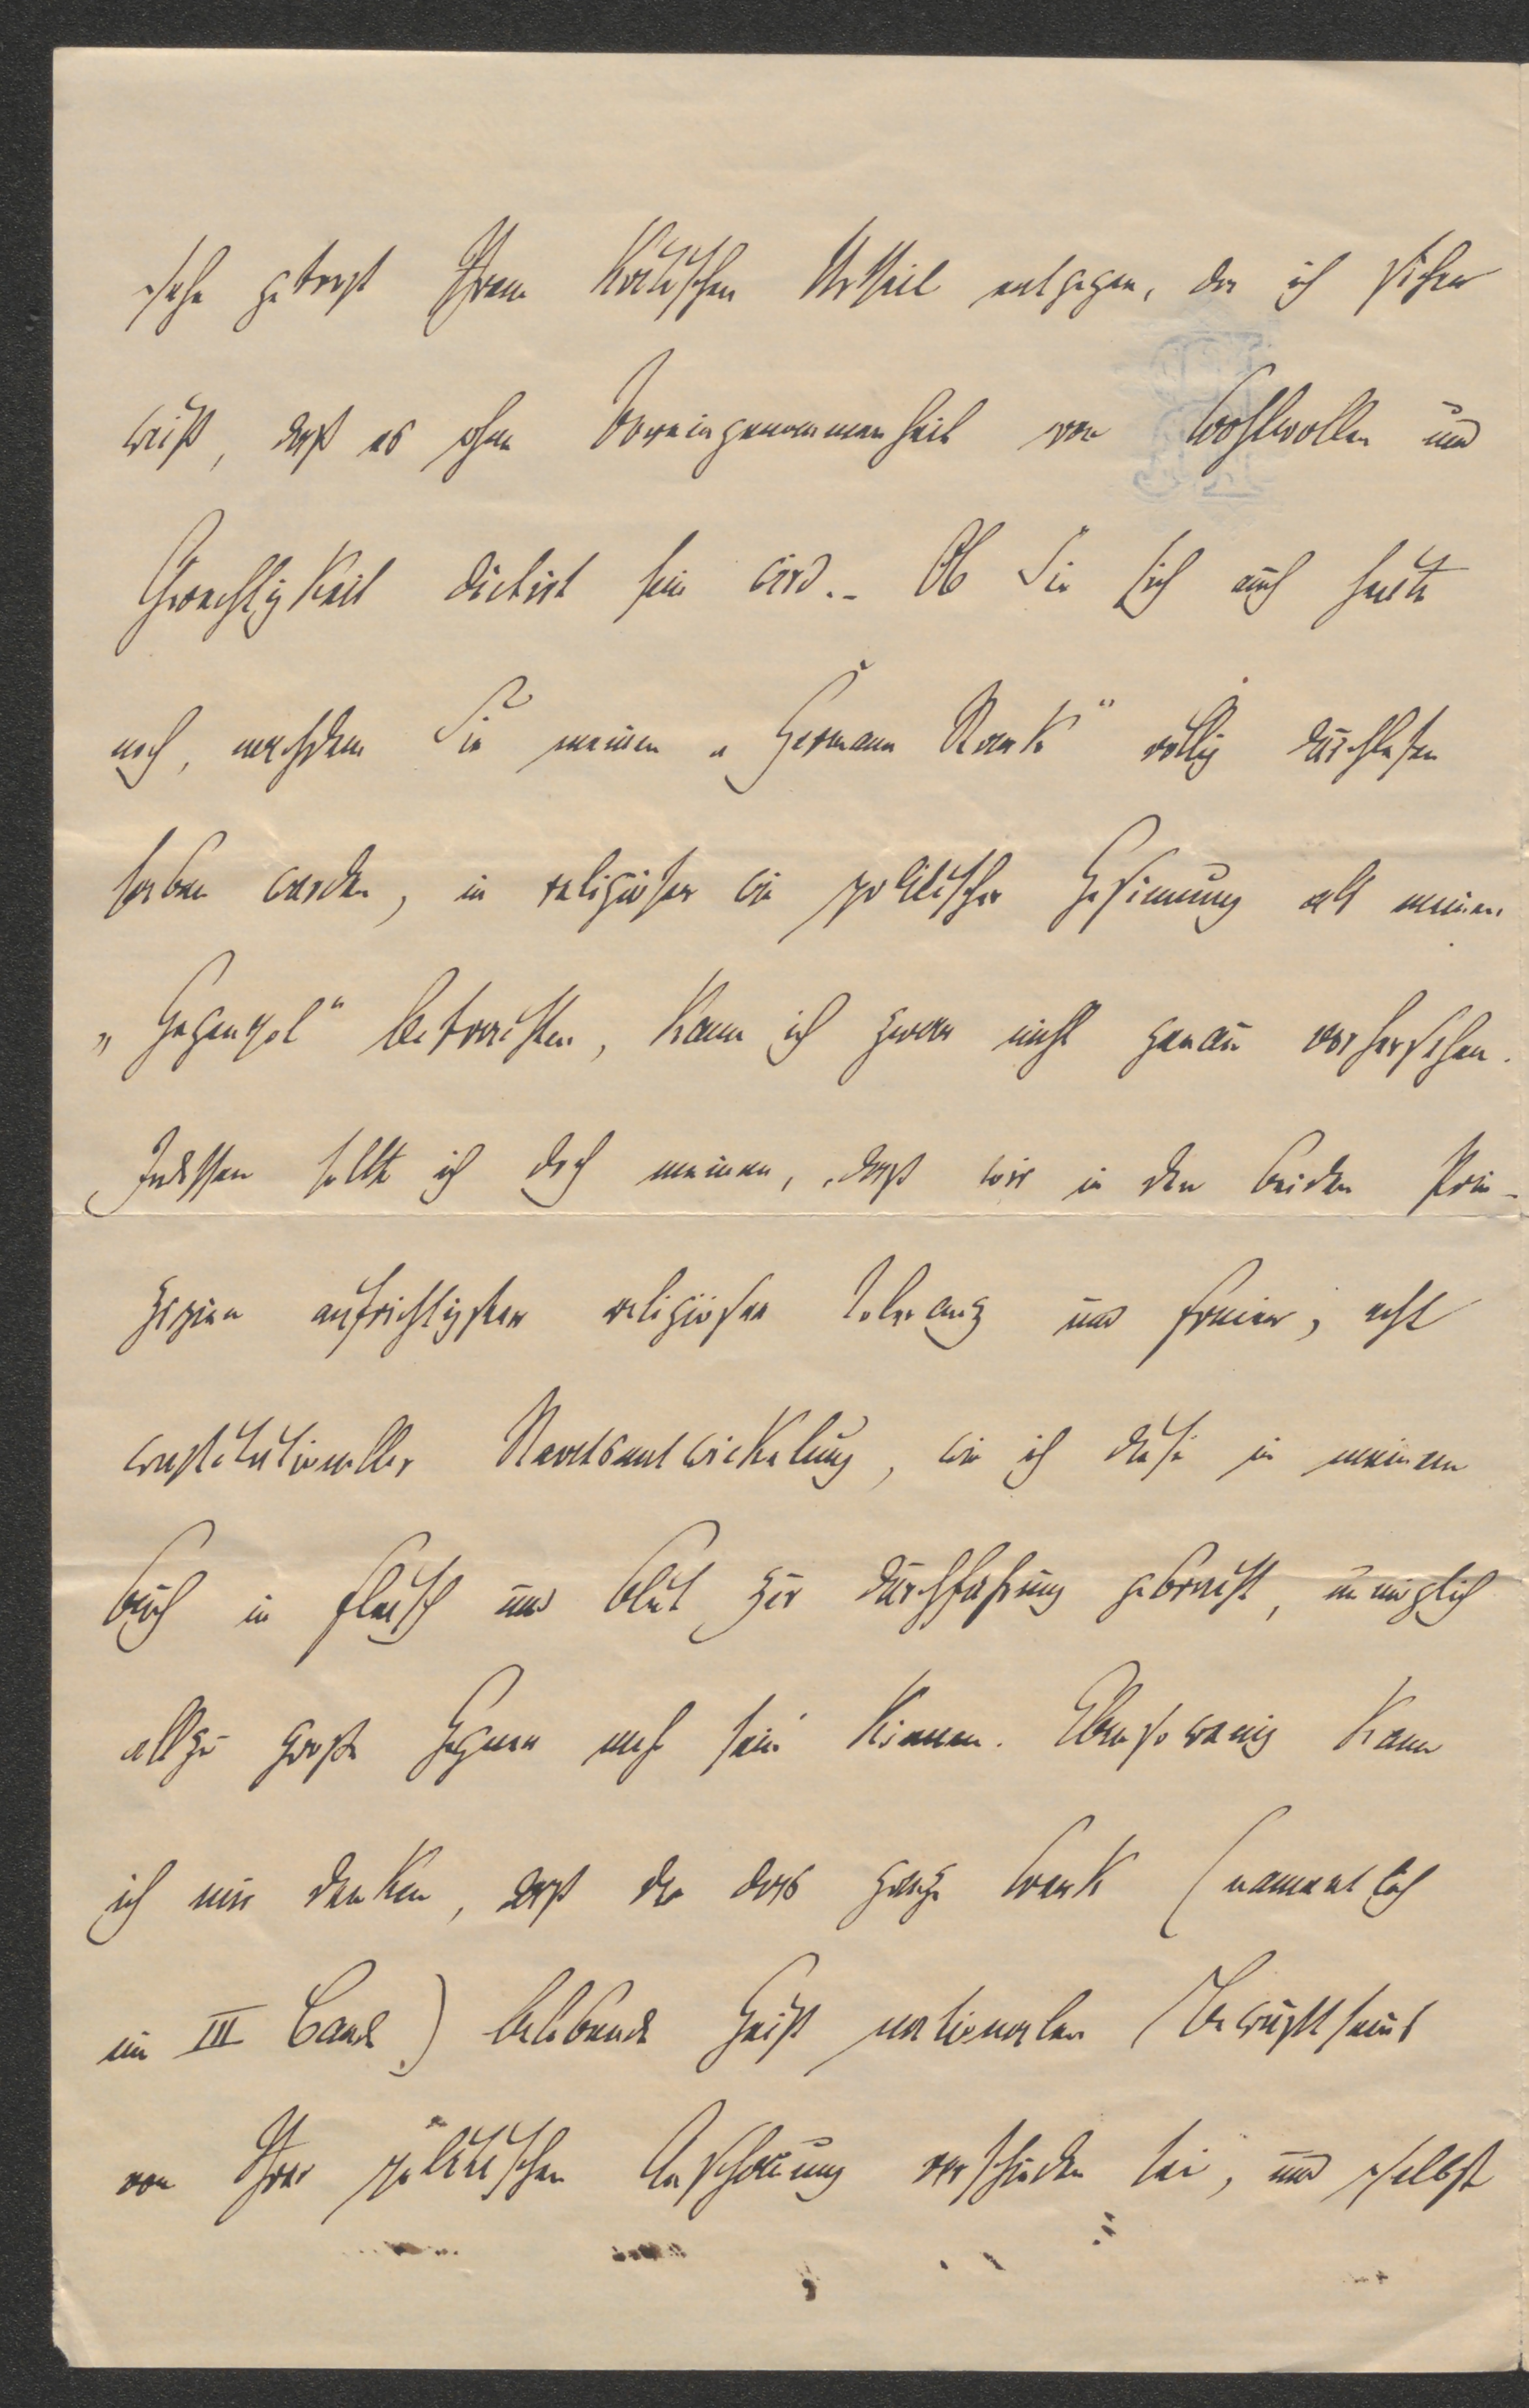 sehe getrost Ihrem kritischen Urtheil entgegen, da ich sicher
weiß, daß es ohne Voreingenommenheit von Wohlwollen und
Gerechtigkeit dictirt sein wird. – Ob Sie sich auch heute
noch, nachdem Sie meinen „Hermann Stark“ völlig durchlesen
haben werden, in religiöser wie politischer Gesinnung als meinen
„Gegenpol“ betrachten, kann ich zwar nicht genau vorhersehen.
Indessen sollte ich doch meinen, daß wir in den beiden Prin-
zipien aufrichtigster religiöser Toleranz und freier, echt
constitutioneller Staatsentwickelung, wie ich diese in meinem
Buch in Fleisch und Blut zur Durchführung gebracht, unmöglich
allzu große Gegner mehr sein können. Ebensowenig kann
ich mir denken, daß der das ganze Werk (namentlich
im III Bande) belebende Geist nationalen Bewußtseins
von Ihrer politischen Anschauung verschieden sei, und selbst